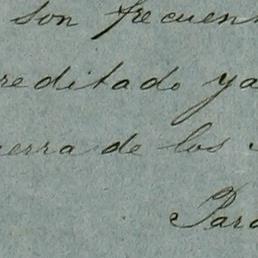 son frecuen
reditado ya
erra de los
Para